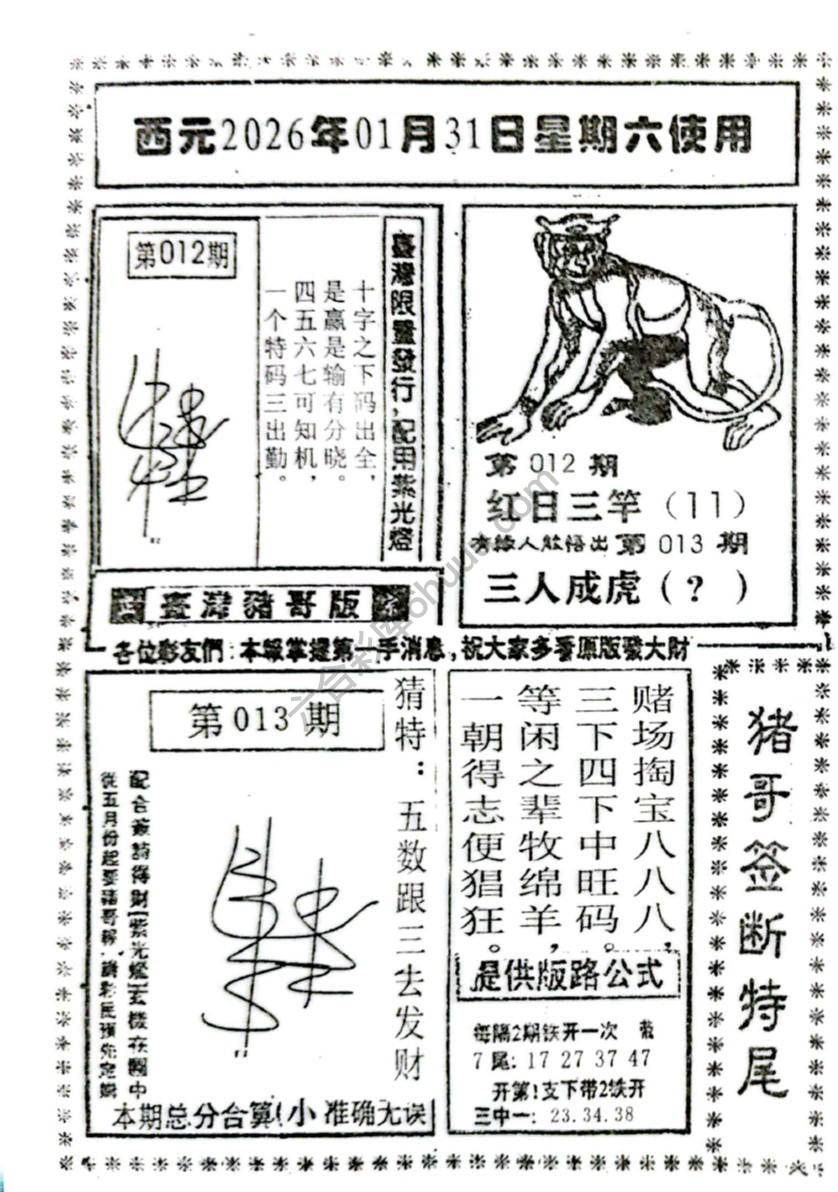 西元2026年01月31日星期六使用
第012期
臺灣限量發行，配用紫光燈
十字之下码出全，
是赢是输有分晓。
四五六七可知机，
一个特码三出勤。
第012期
红日三竿（11）
有緣人能悟出第013期
三人成虎（？）
臺灣豬哥版
各位彩友們：本報掌握第一手消息，祝大家多看原版發大財
第013期
猜特：五数跟三去发财
從五月份起要豬哥報
本期总分合算(小 准确无误
赌场掏宝八八八，
三下四下中旺码。
等闲之辈牧绵羊，
一朝得志便猖狂。
提供版路公式
每隔2期铁开一次
7尾：17 27 37 47
开第1支下带2铁开
三中一：23.34.38
猪哥签断特尾